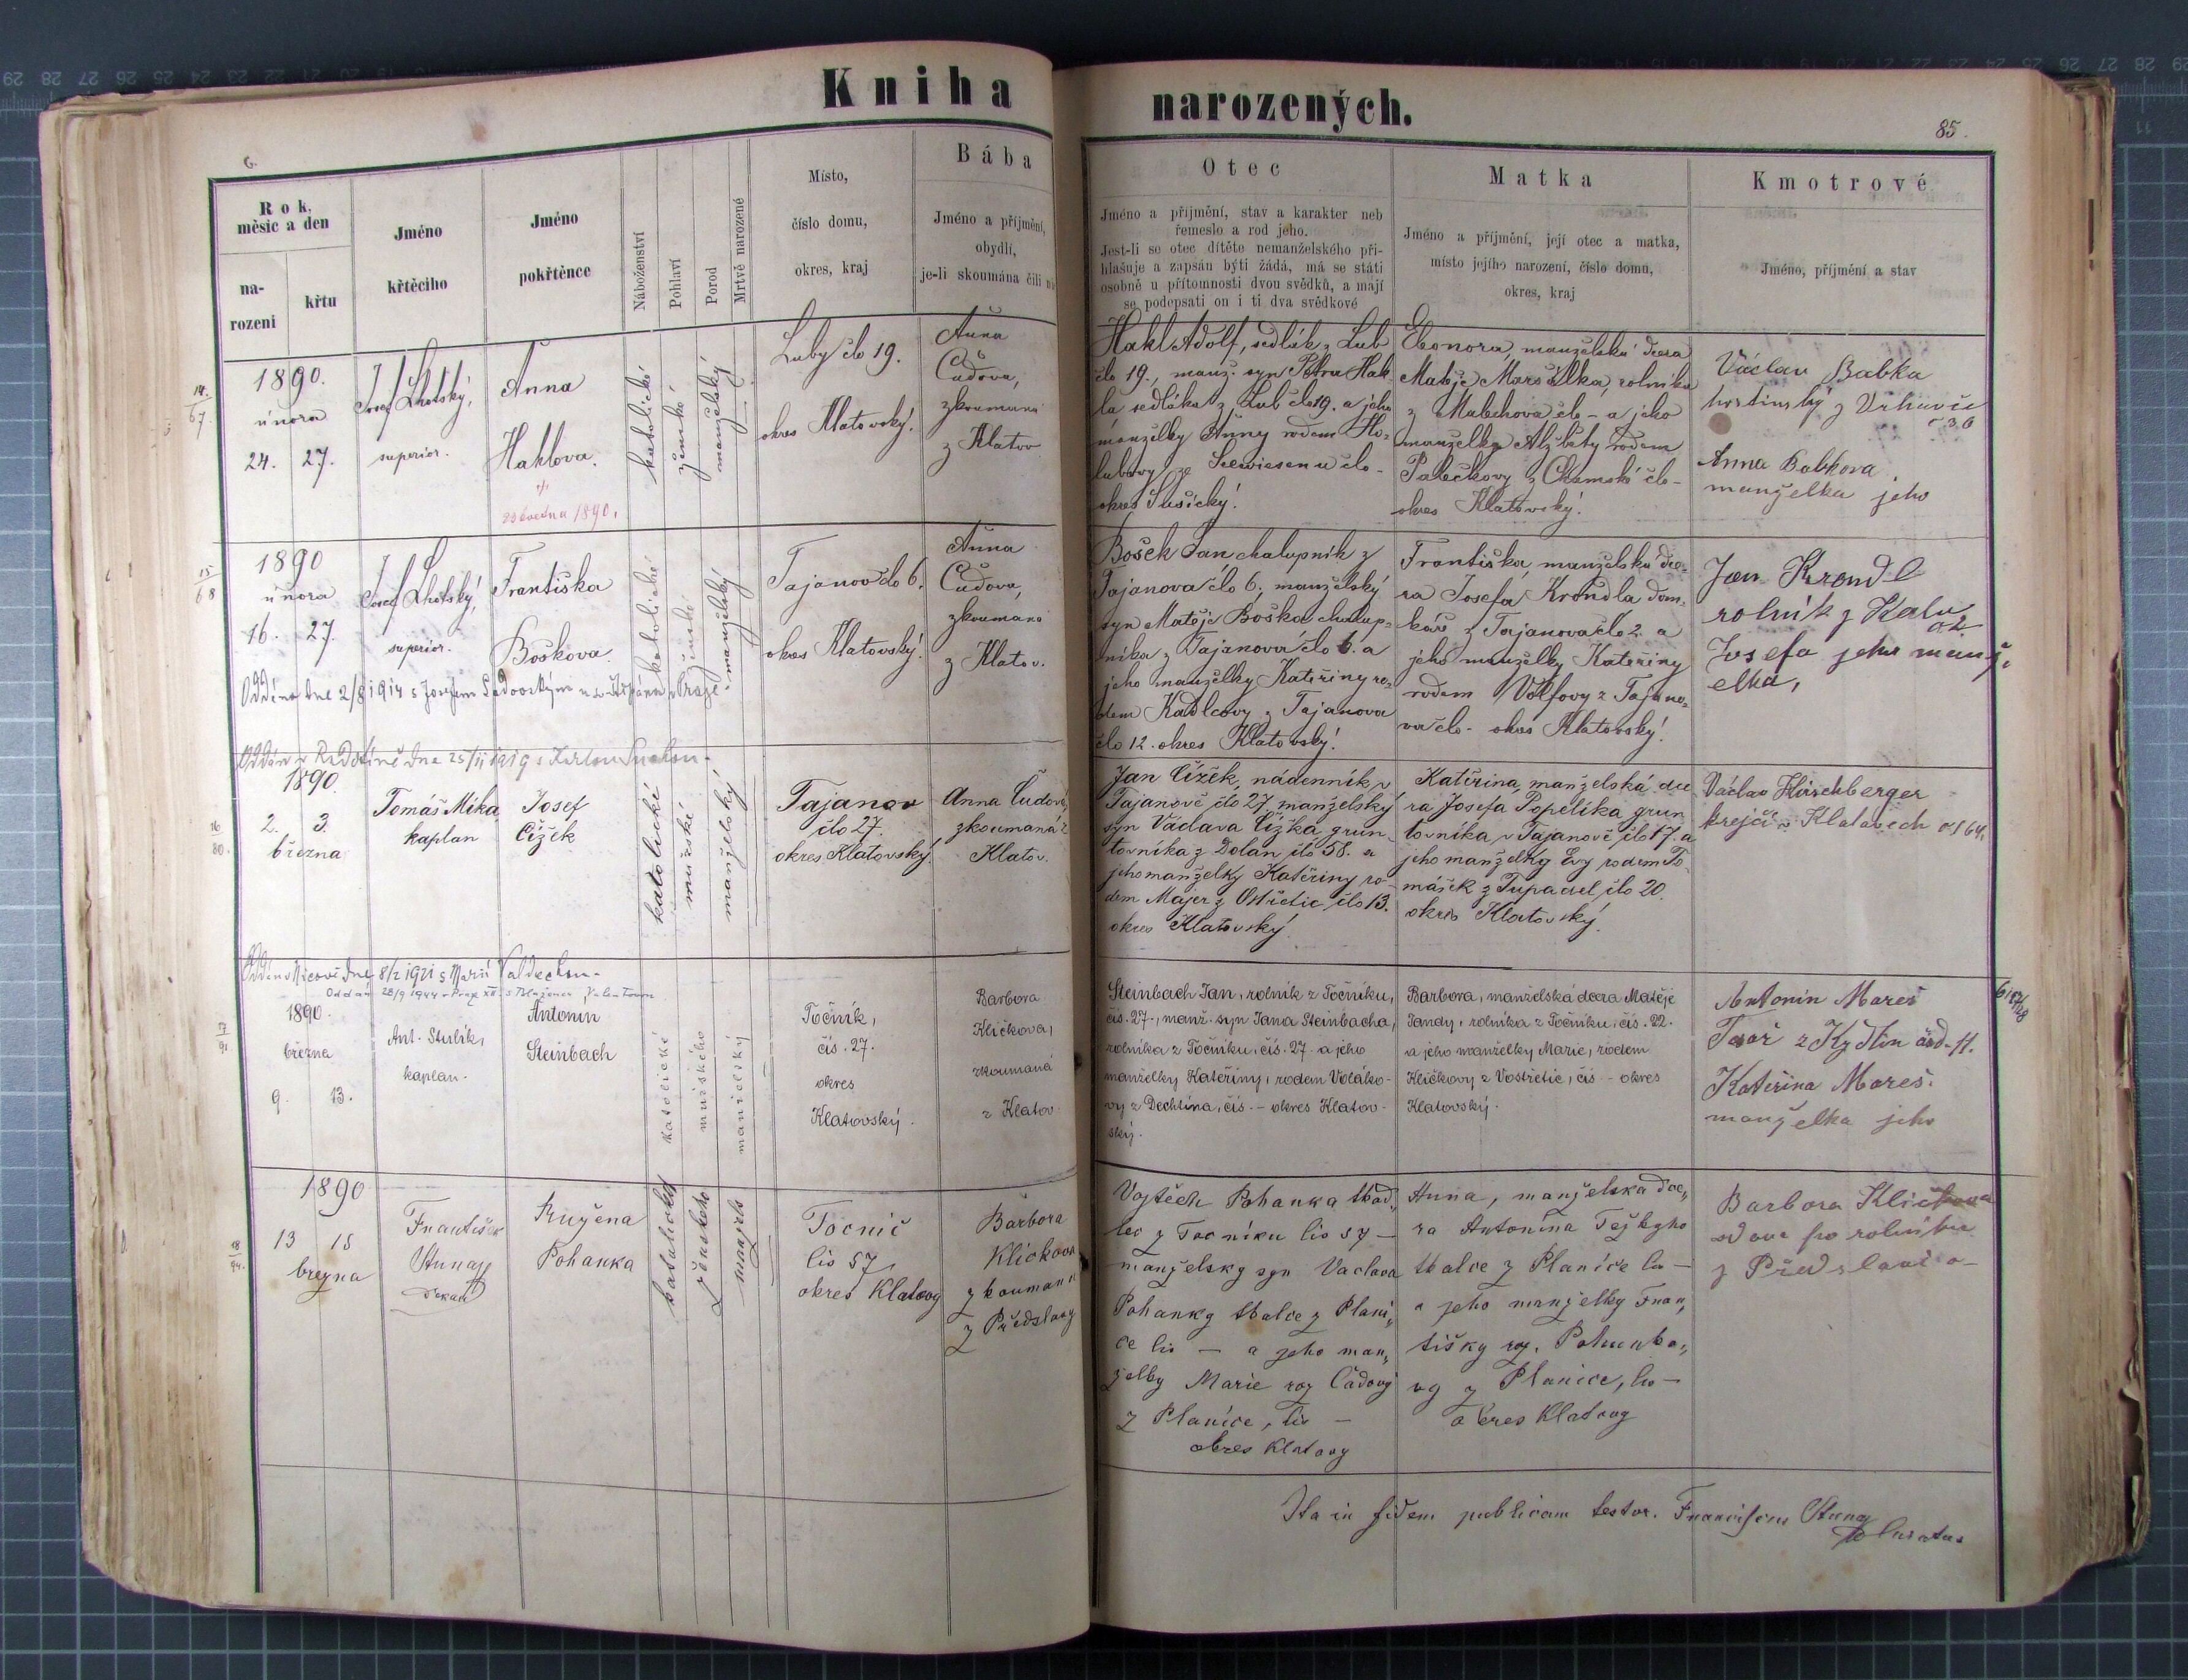 Kniha narozených.
6.
85.
Rok,
měsíc a den
na-
rození
křtu
Jméno
křtěcího
Jméno
pokřtěnce
Náboženství
Pohlaví
Porod
Mrtvě narozené
Místo,
číslo domu,
okres, kraj
Bába
Jméno a příjmění,
obydlí,
je-li skoumána čili
Otec
Jméno a příjmění, stav a karakter neb
řemeslo a rod jeho.
Jest-li se otec dítěte nemanželského při-
hlašuje a zapsán býti žádá, má se státi
osobně u přítomnosti dvou svědků, a mají
se podepsati on i ti dva svědkové
Matka
Jméno a příjmění, její otec a matka,
místo jejího narození, číslo domu,
okres, kraj
Kmotrové
Jméno, příjmění a stav
14.
67.
1890.
února
24. 27.
Josef Lhotský,
superior.
Anna
Haklova.
23 května 1890.
katolické
ženské
manželský
Luby člo 19.
okres Klatovský.
Anna
Čadova,
zkoumaná
z Klatov
Hakl Adolf, sedlák z Lub
člo 19., manž. syn Petra Hak
la sedláka z Lub člo 19. a jeho
manželky Anny rodem Ho-
lubovy ze Seewiesenu člo -
okres Sušický.
Eleonora, manželská dcera
Matěje Maršálka, rolníka
z Malechova člo - a jeho
manželky Alžběty rodem
Palečkovy z Chamské člo -
okres Klatovský.
Václav Babka
hostinský z
Anna Babkova
manželka jeho
15
68
1890
února
16. 27.
Josef Lhotský,
superior.
Františka
Boškova.
katolické
ženské
manželský
Tajanov člo 6.
okres Klatovský.
Anna
Čadova,
zkoumaná
z Klatov.
Oddána dne 2/8 1914 s Josefem Sadovským u sv. Štěpána v Praze.
Bošek Jan chalupník z
Tajanova člo 6, manželský
syn Matěje Boška chalup-
níka z Tajanova člo 6. a
jeho manželky Kateřiny ro-
dem Kadlcovy z Tajanova
člo 12. okres Klatovský.
Františka, manželská dce-
ra Josefa Krondla dom-
káře z Tajanova člo 2. a
jeho manželky Kateřiny
rodem Volfovy z Tajano-
va člo - okres Klatovský.
Jan Krondl
rolník z
Josefa jehu manž-
elka,
Oddán v Radotíně dne 25/11 1919 s
16
80.
1890.
2. 3.
března
Tomáš Mika
kaplan
Josef
Čížek
katolické
mužské
manželský
Tajanov
člo 27.
okres Klatovský
Anna Čadova,
zkoumaná z
Klatov.
Jan Čížek, nádenník v
Tajanově člo 27, manželský
syn Václava Čížka, grun-
tovníka z Dolan člo 58. a
jeho manželky Kateřiny ro-
dem Majer z Ostřetic, člo 13.
okres Klatovský.
Kateřina, manželská dce
ra Josefa Popelíka grun
tovníka v Tajanově člo 17. a
jeho manželky Evy rodem To
mášek z Tupadel, člo 20.
okres Klatovský.
Václav Hirschberger
krejčí v Klatovech č. 164.
17
91.
1890.
března
9. 13.
Ant. Strlík,
kaplan.
Antonín
Steinbach
katolické
mužského
manželský
Točník,
čís. 27.
okres
Klatovský.
Barbora
Kličkova,
zkoumaná
z Klatov
Steinbach Jan, rolník z Točníku,
čís. 27., manž. syn Jana Steinbacha,
rolníka z Točníku, čís. 27. a jeho
manželky Kateřiny, rodem Voláko-
vy z Dechtína, čís. - okres Klatov-
ský.
Barbora, manželská dcera Matěje
Jandy, rolníka z Točníku, čís. 22.
a jeho manželky Marie, rodem
Kličkovy z Vostřetic, čís - okres
Klatovský.
Antonín Mareš
Kateřina Mareš.
manželka jeho
18
94.
1890
13 15
března
František
děkan
Růžena
Pohanka
katolické
ženského
manžels
Točnič
čis 57
okres Klatovy
Barbora
Kličkova
zkoumana
z Předslavy
Vojtěch Pohanka tkad,
lec z Točníku čis 57 -
manželsky syn Vaclava
Pohanky tkalce z Plani,
ce čis - a jeho man,
želky Marie roz Čadovy
z Planice, čis -
okres Klatovy
Anna, manželska dce,
ra Antonína
tkalce z Planice čis -
a jeho manželky Fran,
tišky roz.
vy z Planice, čis -
okres Klatovy
Barbora Kličkova
vdova po rolníku
z Předslavi č -
Ita in fidem publicam testor.